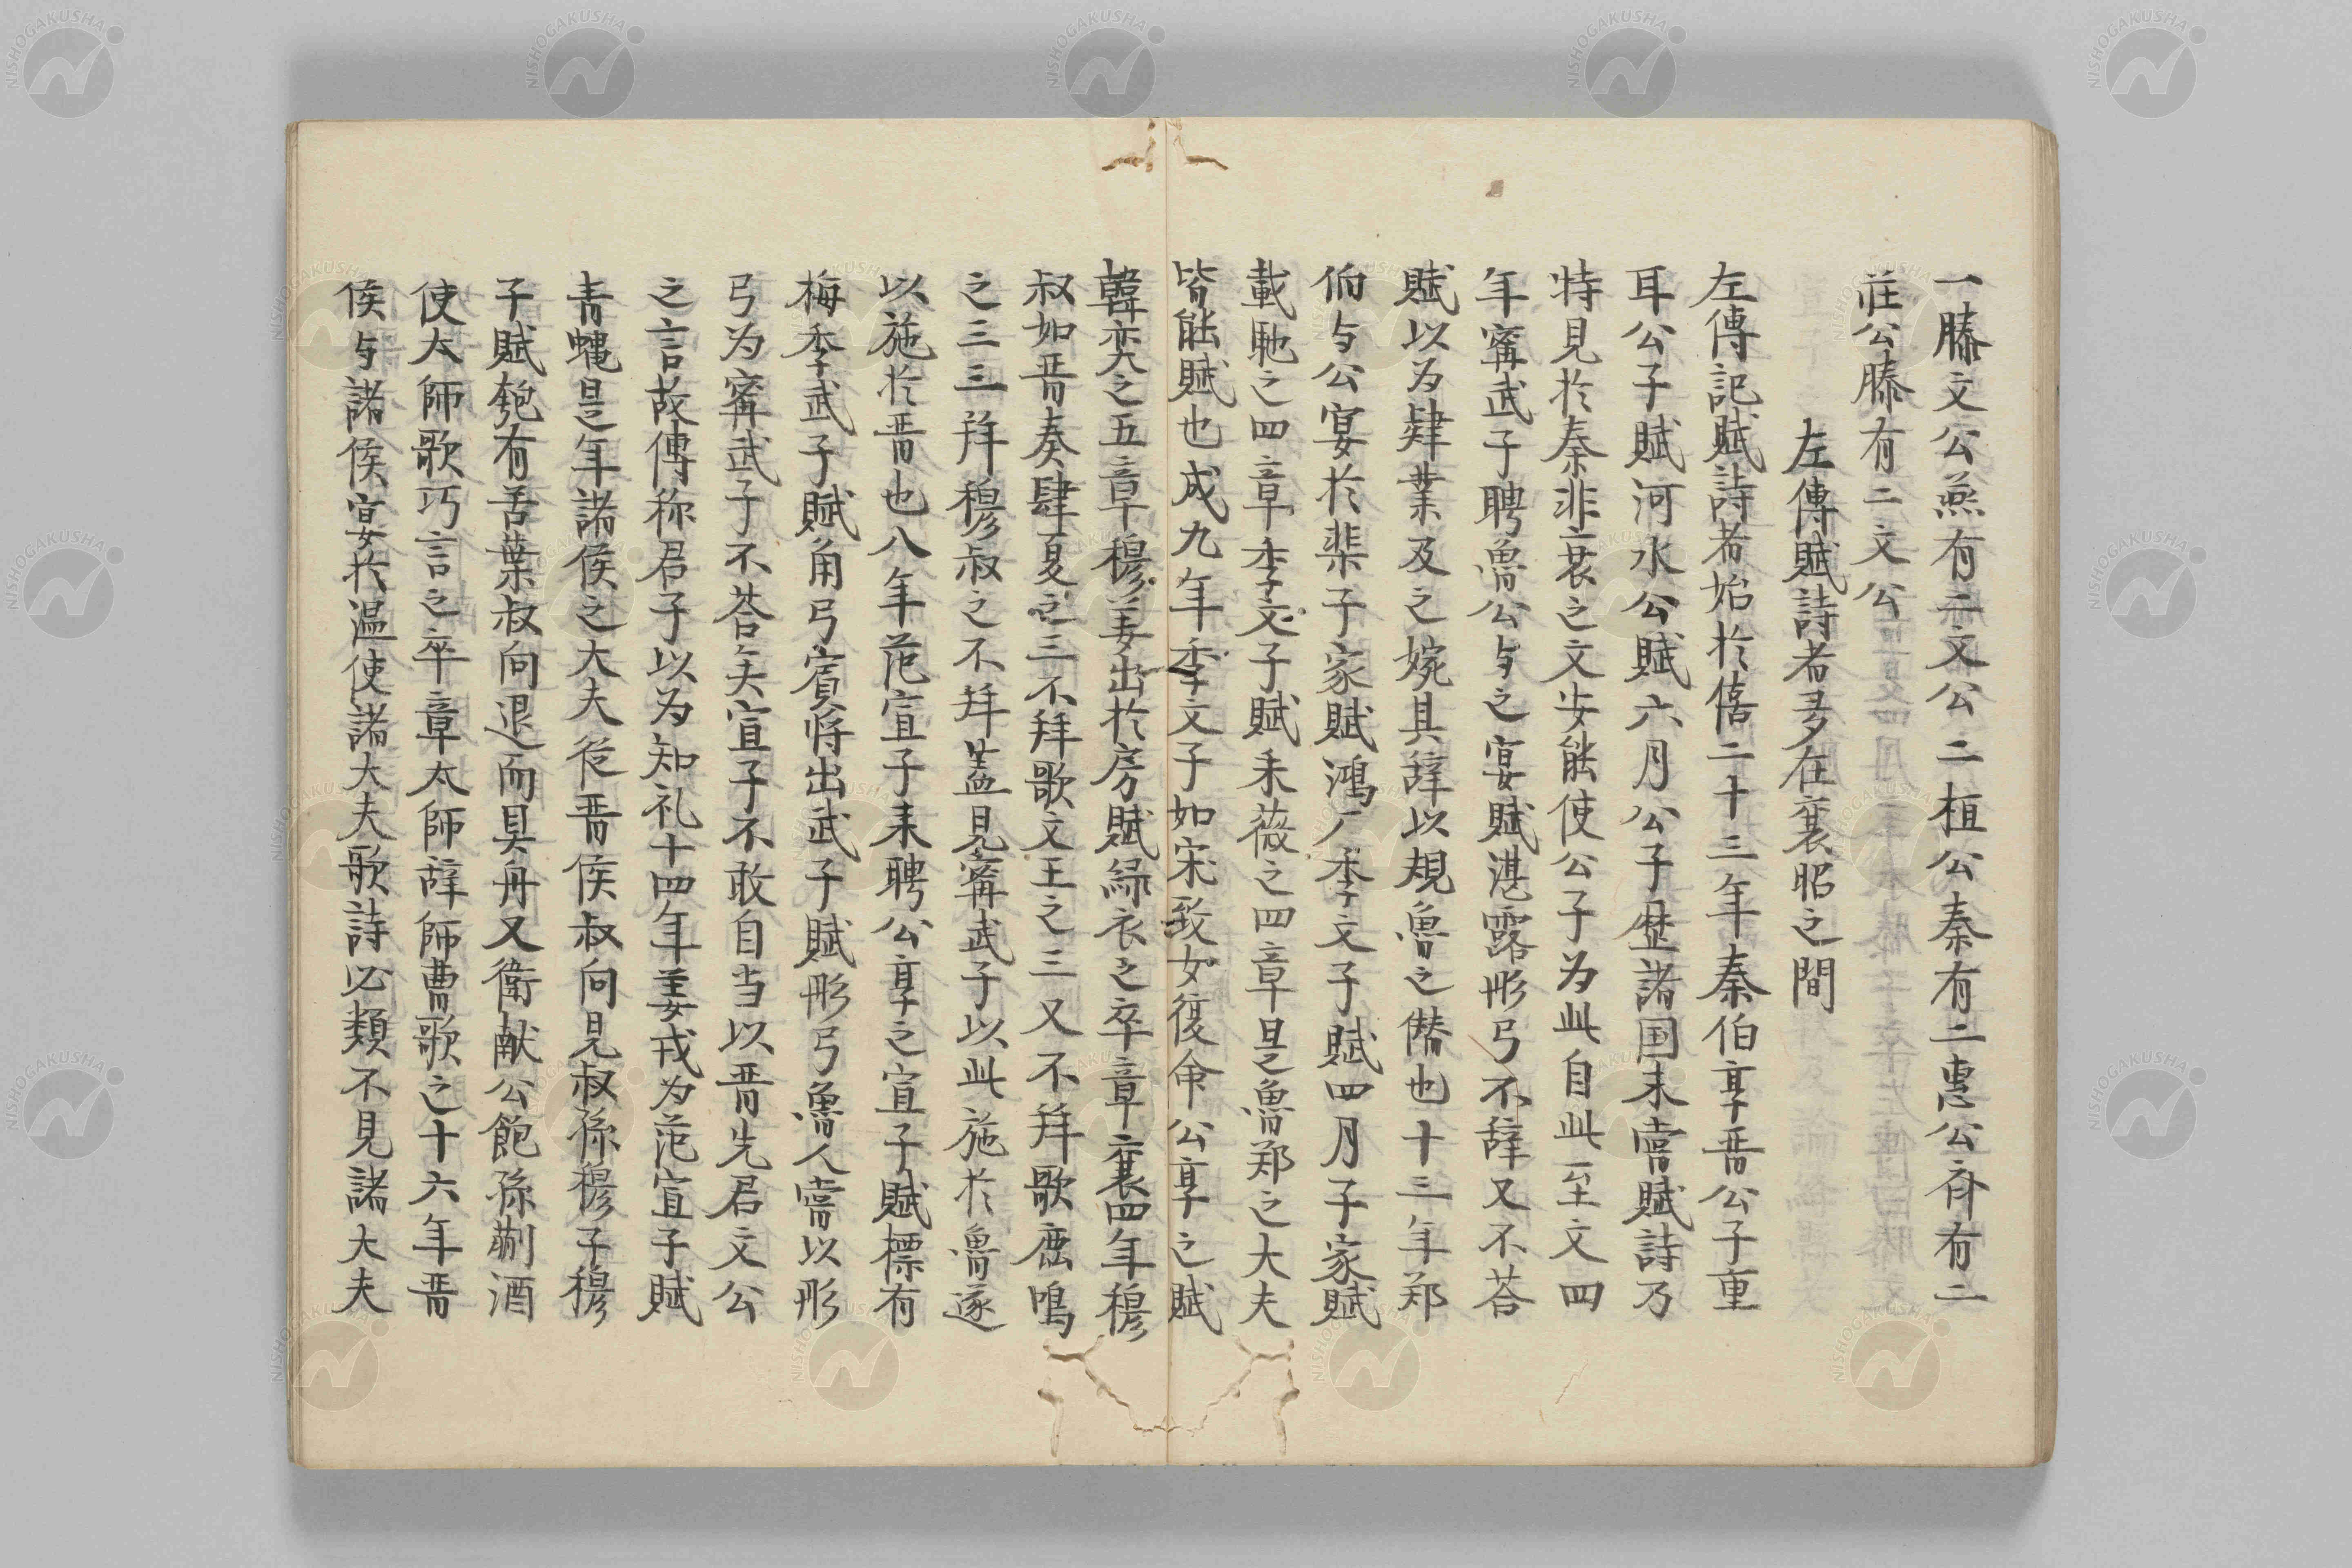 一滕文公燕有二文公二桓公秦有二惠公齐有二
莊公滕有二文公
左傳賦詩者多在襄昭之間
左傳記賦詩者始於僖二十三年秦伯享晋公子重
耳公子賦河水公賦六月公子歴諸国未嘗賦詩乃
特見於秦非衰之文安能使公子为此自此至文四
年寗武子聘魯公与之宴賦湛露彤弓不辞又不荅
賦以为肄業及之婉其辞以規魯之僭也十三年郑
伯与公宴於棐子家賦鴻厂季文子賦四月子家賦
載馳之四章季文子賦采薇之四章是魯郑之大夫
皆能賦也成九年季文子如宋致女復命公享之賦
韓奕之五章穆姜出於房賦緑衣之卒章襄四年穆
叔如晋奏肆夏之三不拜歌文王之三又不拜歌鹿鳴
之三三拜穆叔之不拜盖見寗武子以此施於魯遂
以施於晋也八年范宣子来聘公享之宣子賦摽有
梅季武子賦角弓賓将出武子賦彤弓魯人嘗以彤
弓为寗武子不荅矣宣子不敢自当以晋先君文公
之言故傳称君子以为知礼十四年姜戎为范宣子賦
青蝇是年諸侯之大夫従晋侯叔向見叔孫穆子穆
子賦匏有苦葉叔向退而具舟又衛献公飽孫蒯酒
使太師歌巧言之卒章太師辞師曹歌之十六年晋
侯与諸侯宴於温使諸大夫歌詩必類不見諸大夫
NISHOGAKUSHA